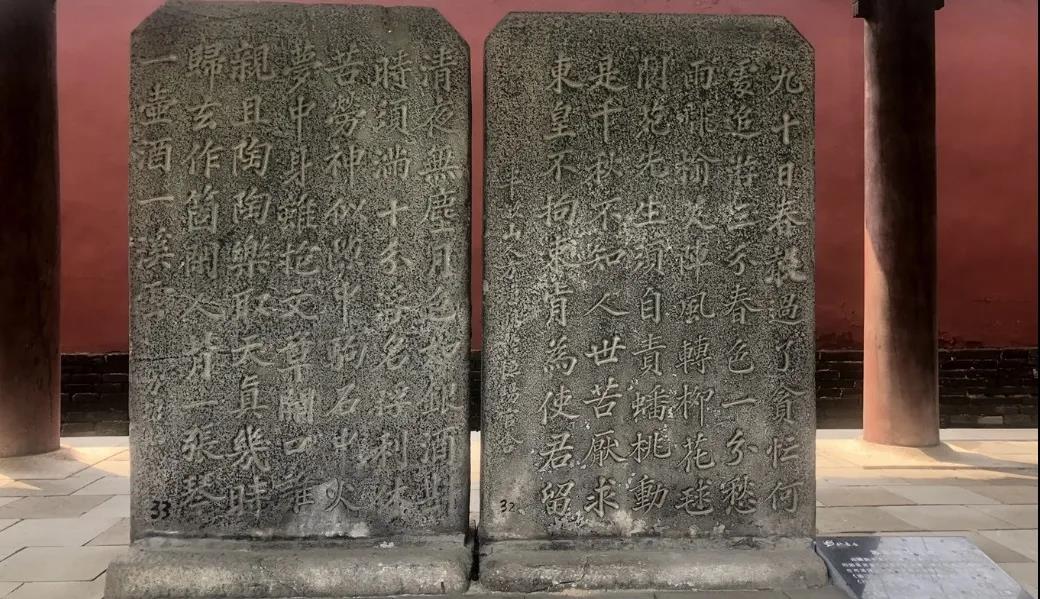 九十日春都過了貪忙何
處追游三分春色一分愁
雨翻榆莢陣風轉柳花毬
閬苑先生須自責蟠桃動
是千秋不知人世苦厭求
東皇不拘束肯為使君留
32
清夜無塵月色如銀酒斟
時須滿十分浮名浮利休
苦勞神似隙中駒石中火
夢中身雖抱文章開口誰
親且陶陶樂取天真幾時
歸去作箇閒人背一張琴
一壺酒一溪雲
33